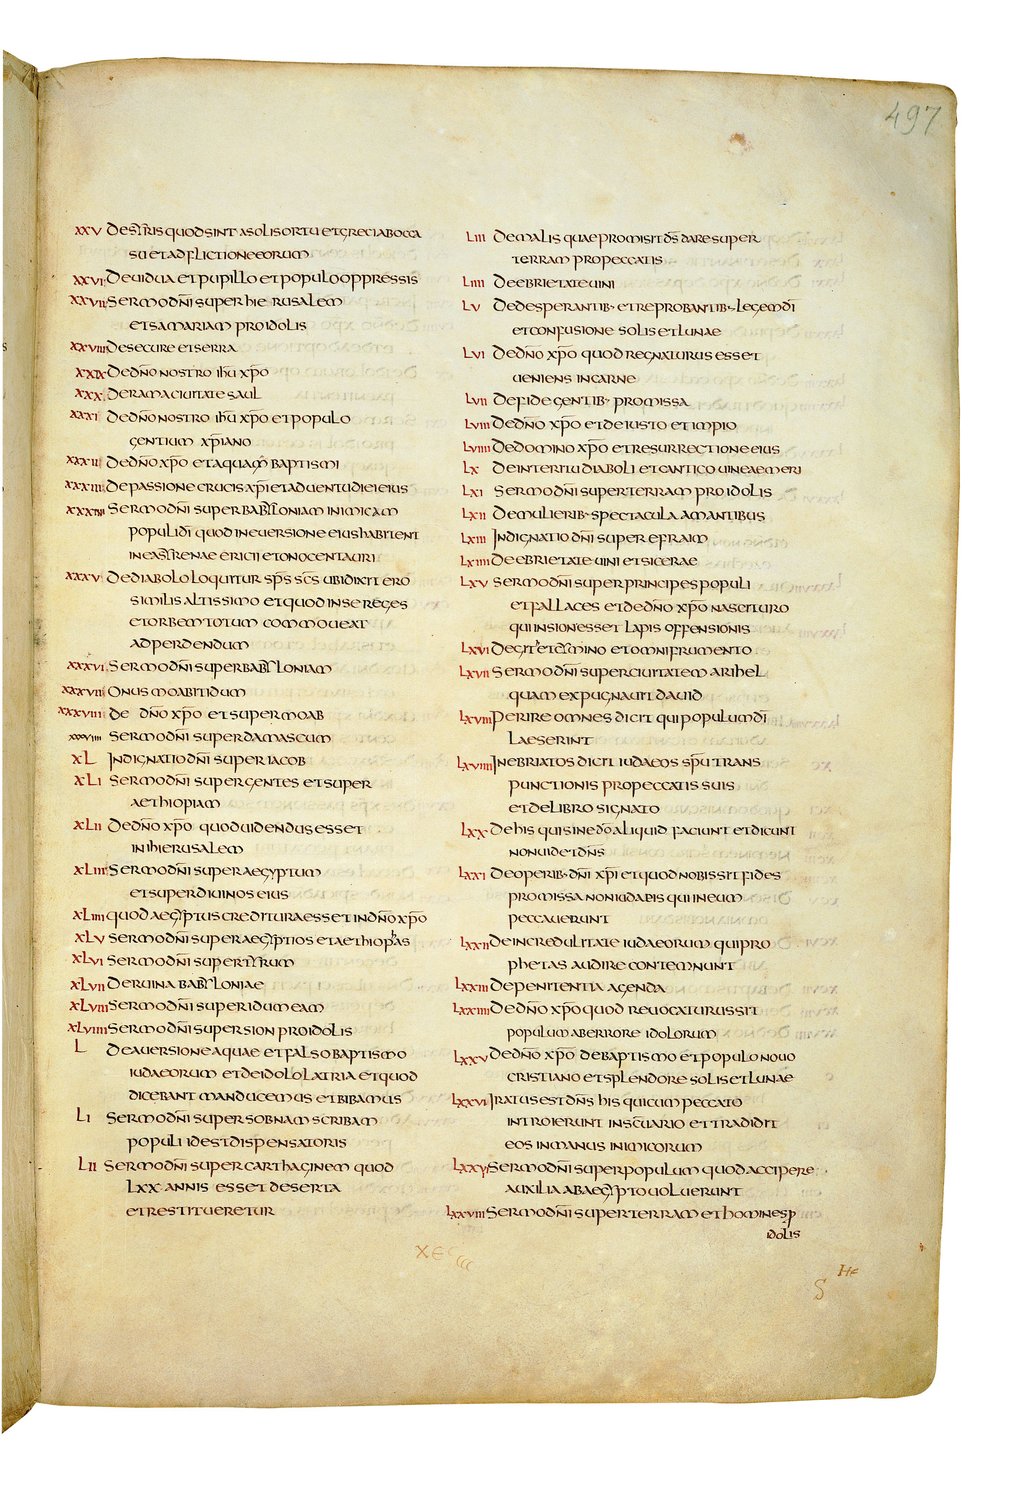 497
XXV De syris quod sint a solis ortu et greci a bocca
su et adflictione eorum
XXVI De uidua et pupillo et populo oppressis
XXVII Sermo dn̄i super hierusalem
et samariam pro idolis
XXVIII De secure et serra
XXIX De dn̄o nostro ih̄u xp̄o
XXX De rama ciuitate saul
XXXI De dn̄o nostro ih̄u xp̄o et populo
gentium xp̄iano
XXXII De dn̄o xp̄o et aquam baptismi
XXXIII De passione crucis xp̄i et aduentu diei eius
XXXIIII Sermo dn̄i super babyloniam inimicam
populi dī quod in euersione eius habitent
in ea syrenae ericii et onocentauri
XXXV De diabolo loquitur sp̄s sc̄s ubi dixit ero
similis altissimo et quod in se reges
et orbem totum commoueat
ad perdendum
XXXVI Sermo dn̄i super babyloniam
XXXVII Onus moabitidum
XXXVIII De dn̄o xp̄o et super moab
XXXVIIII Sermo dn̄i super damascum
XL Indignatio dn̄i super iacob
XLI Sermo dn̄i super gentes et super
aethiopiam
XLII De dn̄o xp̄o quod uidendus esset
in hierusalem
XLIII Sermo dn̄i super aegyptum
et super diuinos eius
XLIIII quod aegyptus creditura esset in dn̄o xp̄o
XLV Sermo dn̄i super aegyptios et aethiopas
XLVI Sermo dn̄i super tyrum
XLVII De ruina babyloniae
XLVIII Sermo dn̄i super idumeam
XLVIIII Sermo dn̄i super sion pro idolis
L De auersione aquae et falso baptismo
iudaeorum et de idololatria et quod
dicebant manducemus et bibamus
LI Sermo dn̄i super sobnam scribam
populi id est dispensatoris
LII Sermo dn̄i super carthaginem quod
LXX annis esset deserta
et restitueretur
LIII De malis quae promisit d̄s dare super
terram pro peccatis
LIIII De ebrietate uini
LV De desperantib· et reprobantib· legem dī
et confusione solis et lunae
LVI De dn̄o xp̄o quod regnaturus esset
ueniens in carne
LVII De fide gentib· promissa
LVIII De dn̄o xp̄o et de iusto et impio
LVIIII De domino xp̄o et resurrectione eius
LX De interitu diaboli et cantico uineae meri
LXI Sermo dn̄i super terram pro idolis
LXII De mulierib· spectacula amantibus
LXIII Indignatio dn̄i super efraim
LXIIII De ebrietate uini et sicerae
LXV Sermo dn̄i super principes populi
et fallaces et de dn̄o xp̄o nascituro
qui in sion esset lapis offensionis
LXVI De git et cymino et omni frumento
LXVII Sermo dn̄i super ciuitatem arihel
quam expugnauit dauid
LXVIII Perire omnes dicit qui populum dī
laeserint
LXVIIII Inebriatos dicit iudaeos sp̄u trans
punctionis pro peccatis suis
et de libro signato
LXX De his qui sine dō aliquid faciunt et dicunt
non uidet dn̄s
LXXI De operib· dn̄i xp̄i et quod nobis sit fides
promissa non iudaeis qui in eum
peccauerunt
LXXII De incredulitate iudaeorum qui pro
phetas audire contemnunt
LXXIII De penitentia agenda
LXXIIII De dn̄o xp̄o quod reuocaturus sit
populum ab errore idolorum
LXXV De dn̄o xp̄o de baptismo et populo nouo
cristiano et splendore solis et lunae
LXXVI Iratus est dn̄s his qui cum peccato
introierunt in sc̄uario et tradidit
eos in manus inimicorum
LXXVII Sermo dn̄i super populum quod accipere
auxilia ab aegypto uoluerunt
LXXVIII Sermo dn̄i super terram et homines p̱
idolis